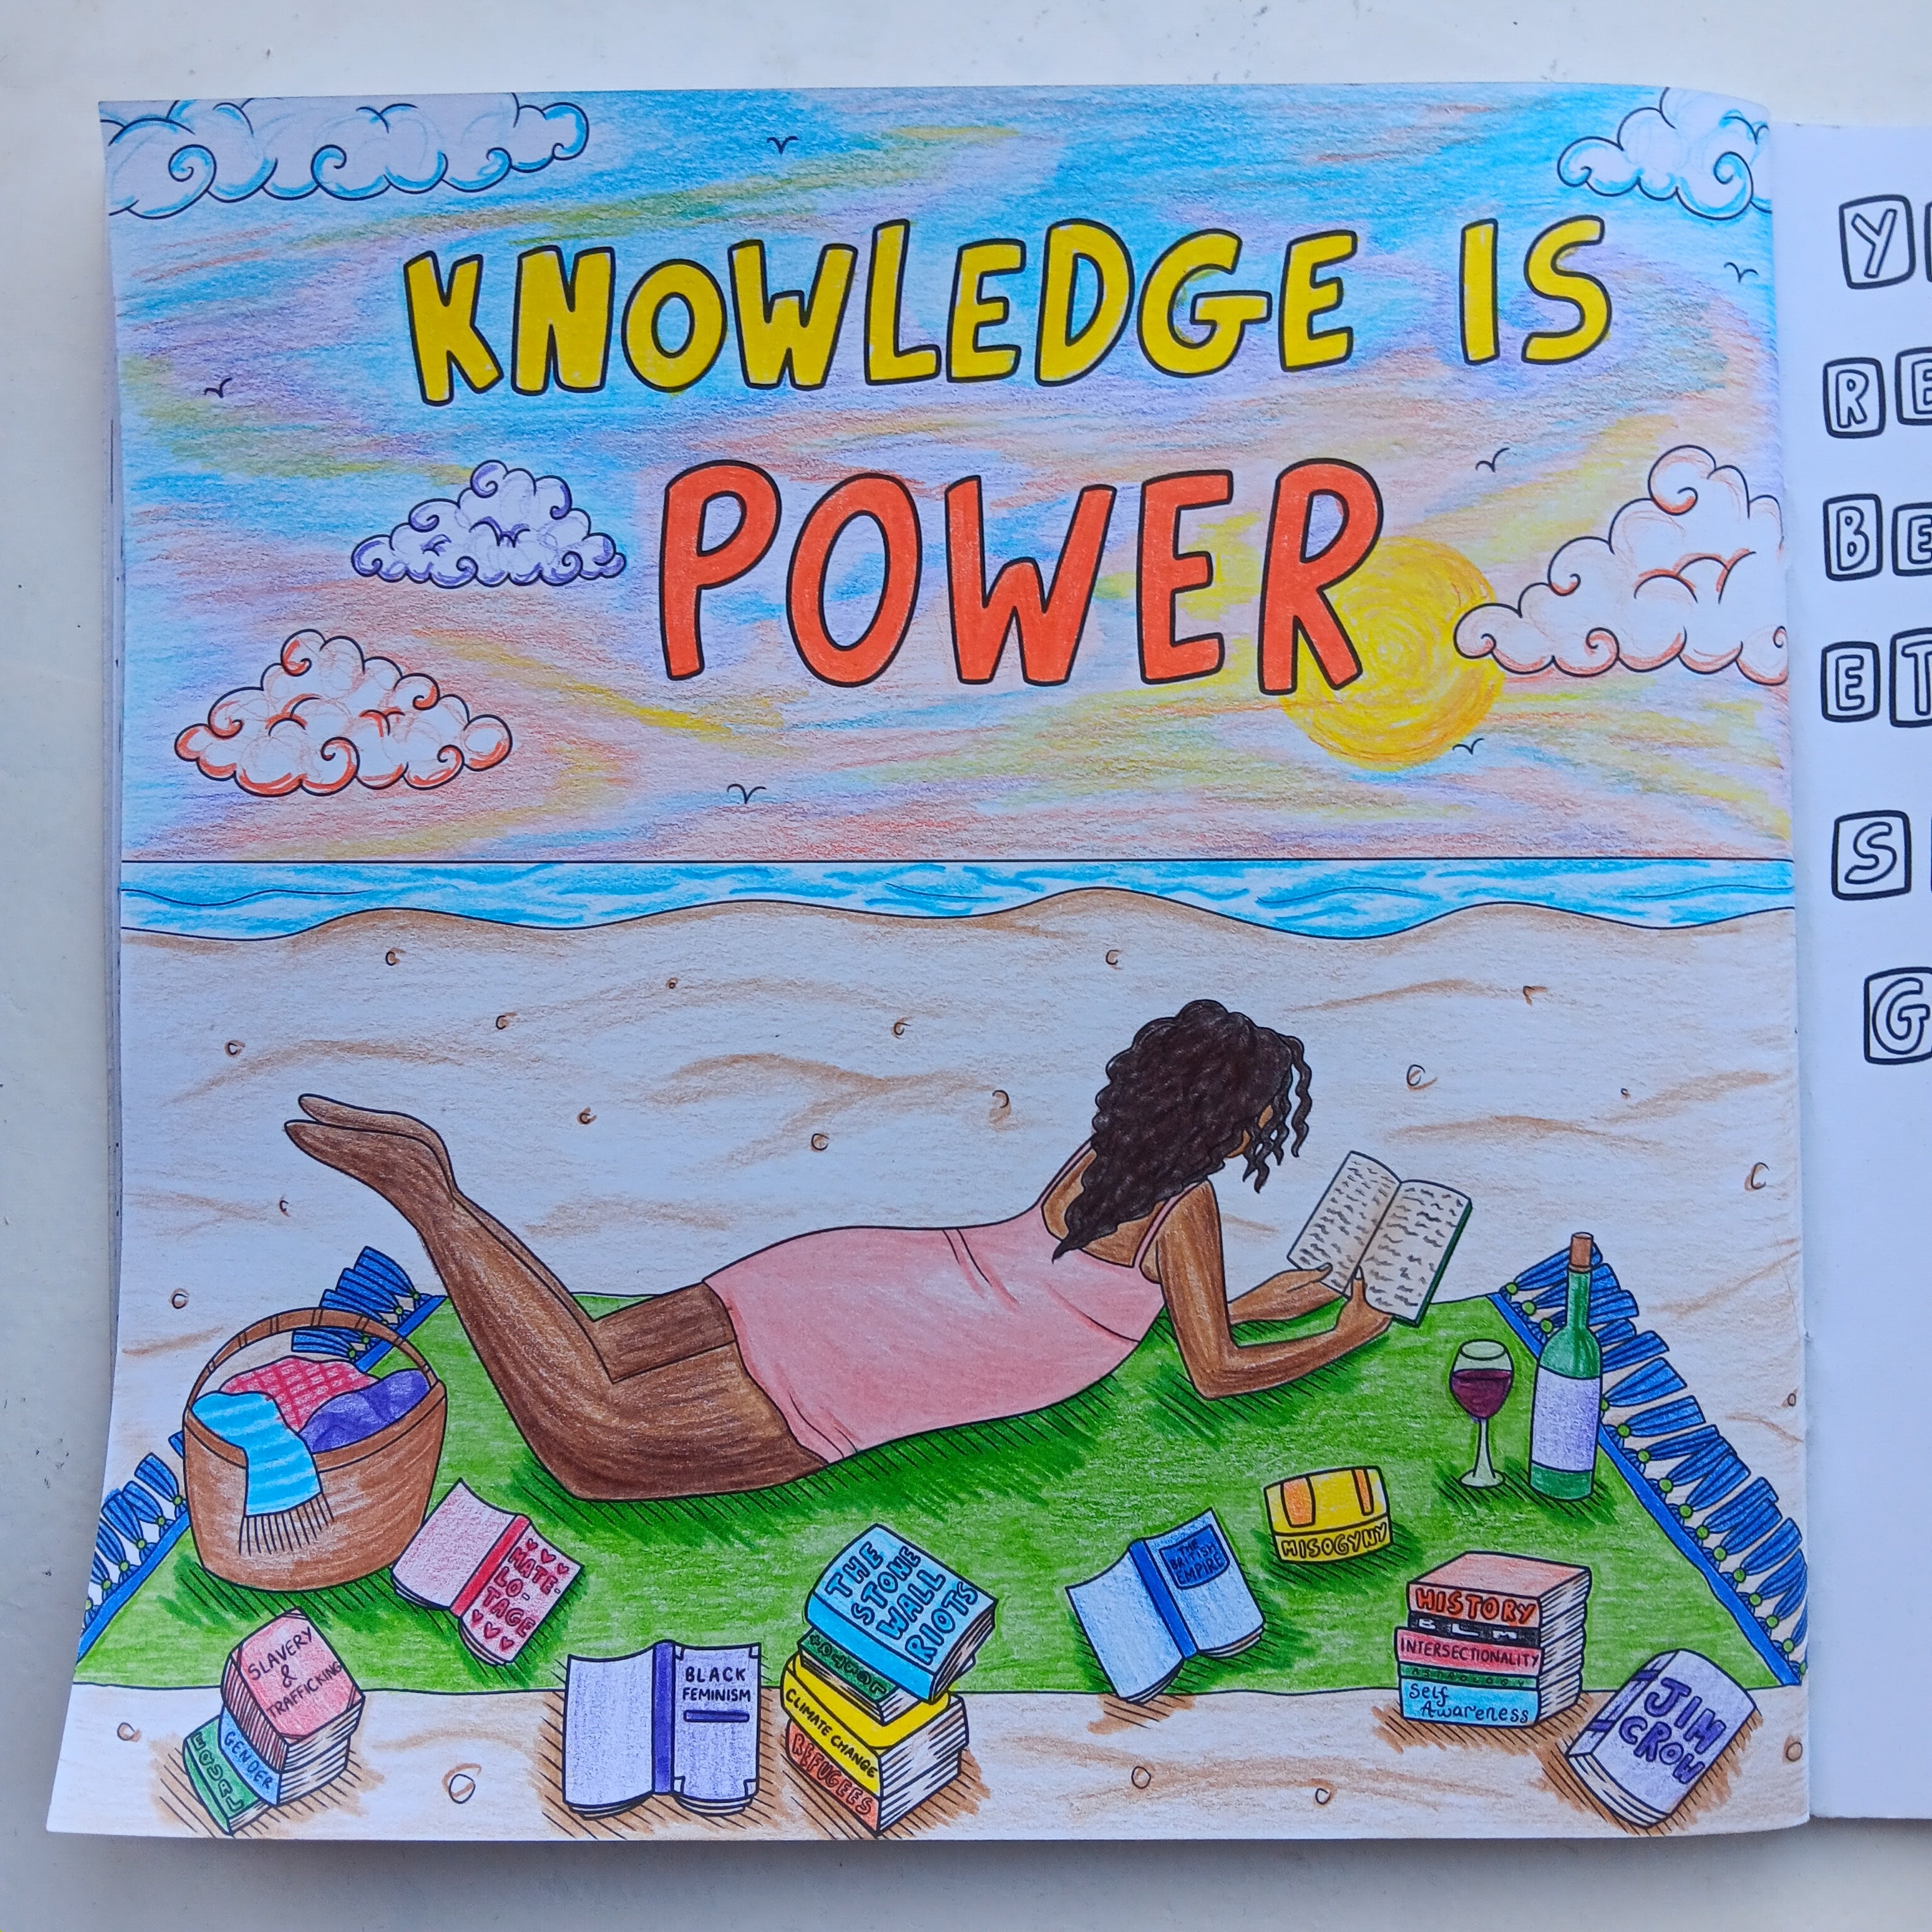 KNOWLEDGE IS
POWER
MATE-
LO-
TAGE
SLAVERY
&
TRAFFICKING
GENDER
BLACK
FEMINISM
THE
STONE
WALL
RIOTS
CLIMATE CHANGE
REFUGEES
THE
BRITISH
EMPIRE
MISOGYNY
HISTORY
BLM
INTERSECTIONALITY
ASTROLOGY
Self
Awareness
JIM
CROW
Y
R E
B E
E T
S
G